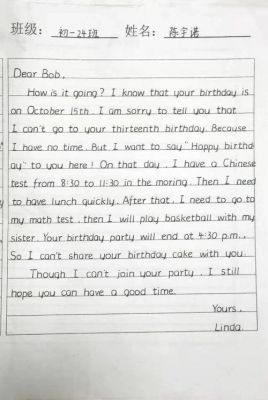 班级: 初一24班 姓名: 陈宇诺
Dear Bob,
How is it going? I know that your birthday is
on October 15th. I am sorry to tell you that
I can't go to your thirteenth birthday. Because
I have no time. But I want to say "Happy birthd
ay" to you here! On that day, I have a Chinese
test from 8:30 to 11:30 in the moring. Then I need
to have lunch quickly. After that, I need to go to
my math test, then I will play basketball with my
sister. Your birthday party will end at 4:30 p.m.,
So I can't share your birthday cake with you.
Though I can't join your party, I still
hope you can have a good time.
Yours,
Linda.